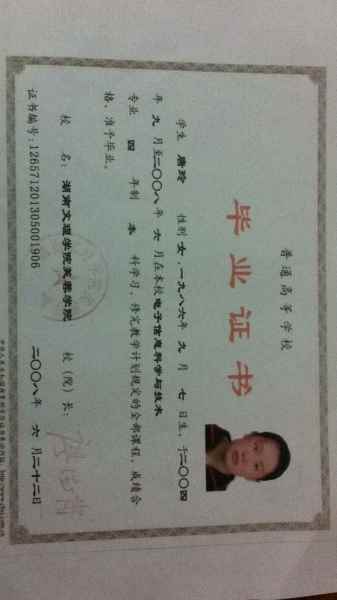 普通高等学校
毕业证书
学生 唐玲 性别 女,一九八六年 九 月 七 日生,于二〇〇四
年 九 月至二〇〇八年 六 月在本校电子信息科学与技术
专业 四 年制 本 科学习,修完教学计划规定的全部课程,成绩合
格,准予毕业。
校 名:湖南文理学院芙蓉学院 校(院)长:
证书编号:126571201305001906 二〇〇八年 六 月二十二日